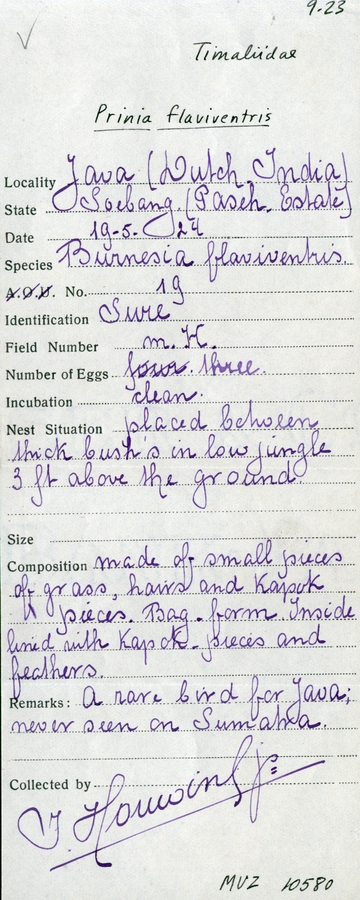 9-23
Timaliidae
Prinia flaviventris
Locality Java (Dutch. India)
State Soebang (Pasch. Estate)
Date 19-5. 24
Species Burnesia flaviventris.
A.O.U. No. 19
Identification Sure
Field Number m. H.
Number of Eggs four. three.
Incubation clean.
Nest Situation placed between
thick bush's in low jungle
3 ft above the ground
Size
Composition made of small pieces
of grass, hairs and Kapok
pieces. Bag-form. Inside
lined with Kapok-pieces and
feathers.
Remarks: A rare bird for Java,
never seen on Sumatra.
Collected by
J. Houwing jr:
MVZ 10580